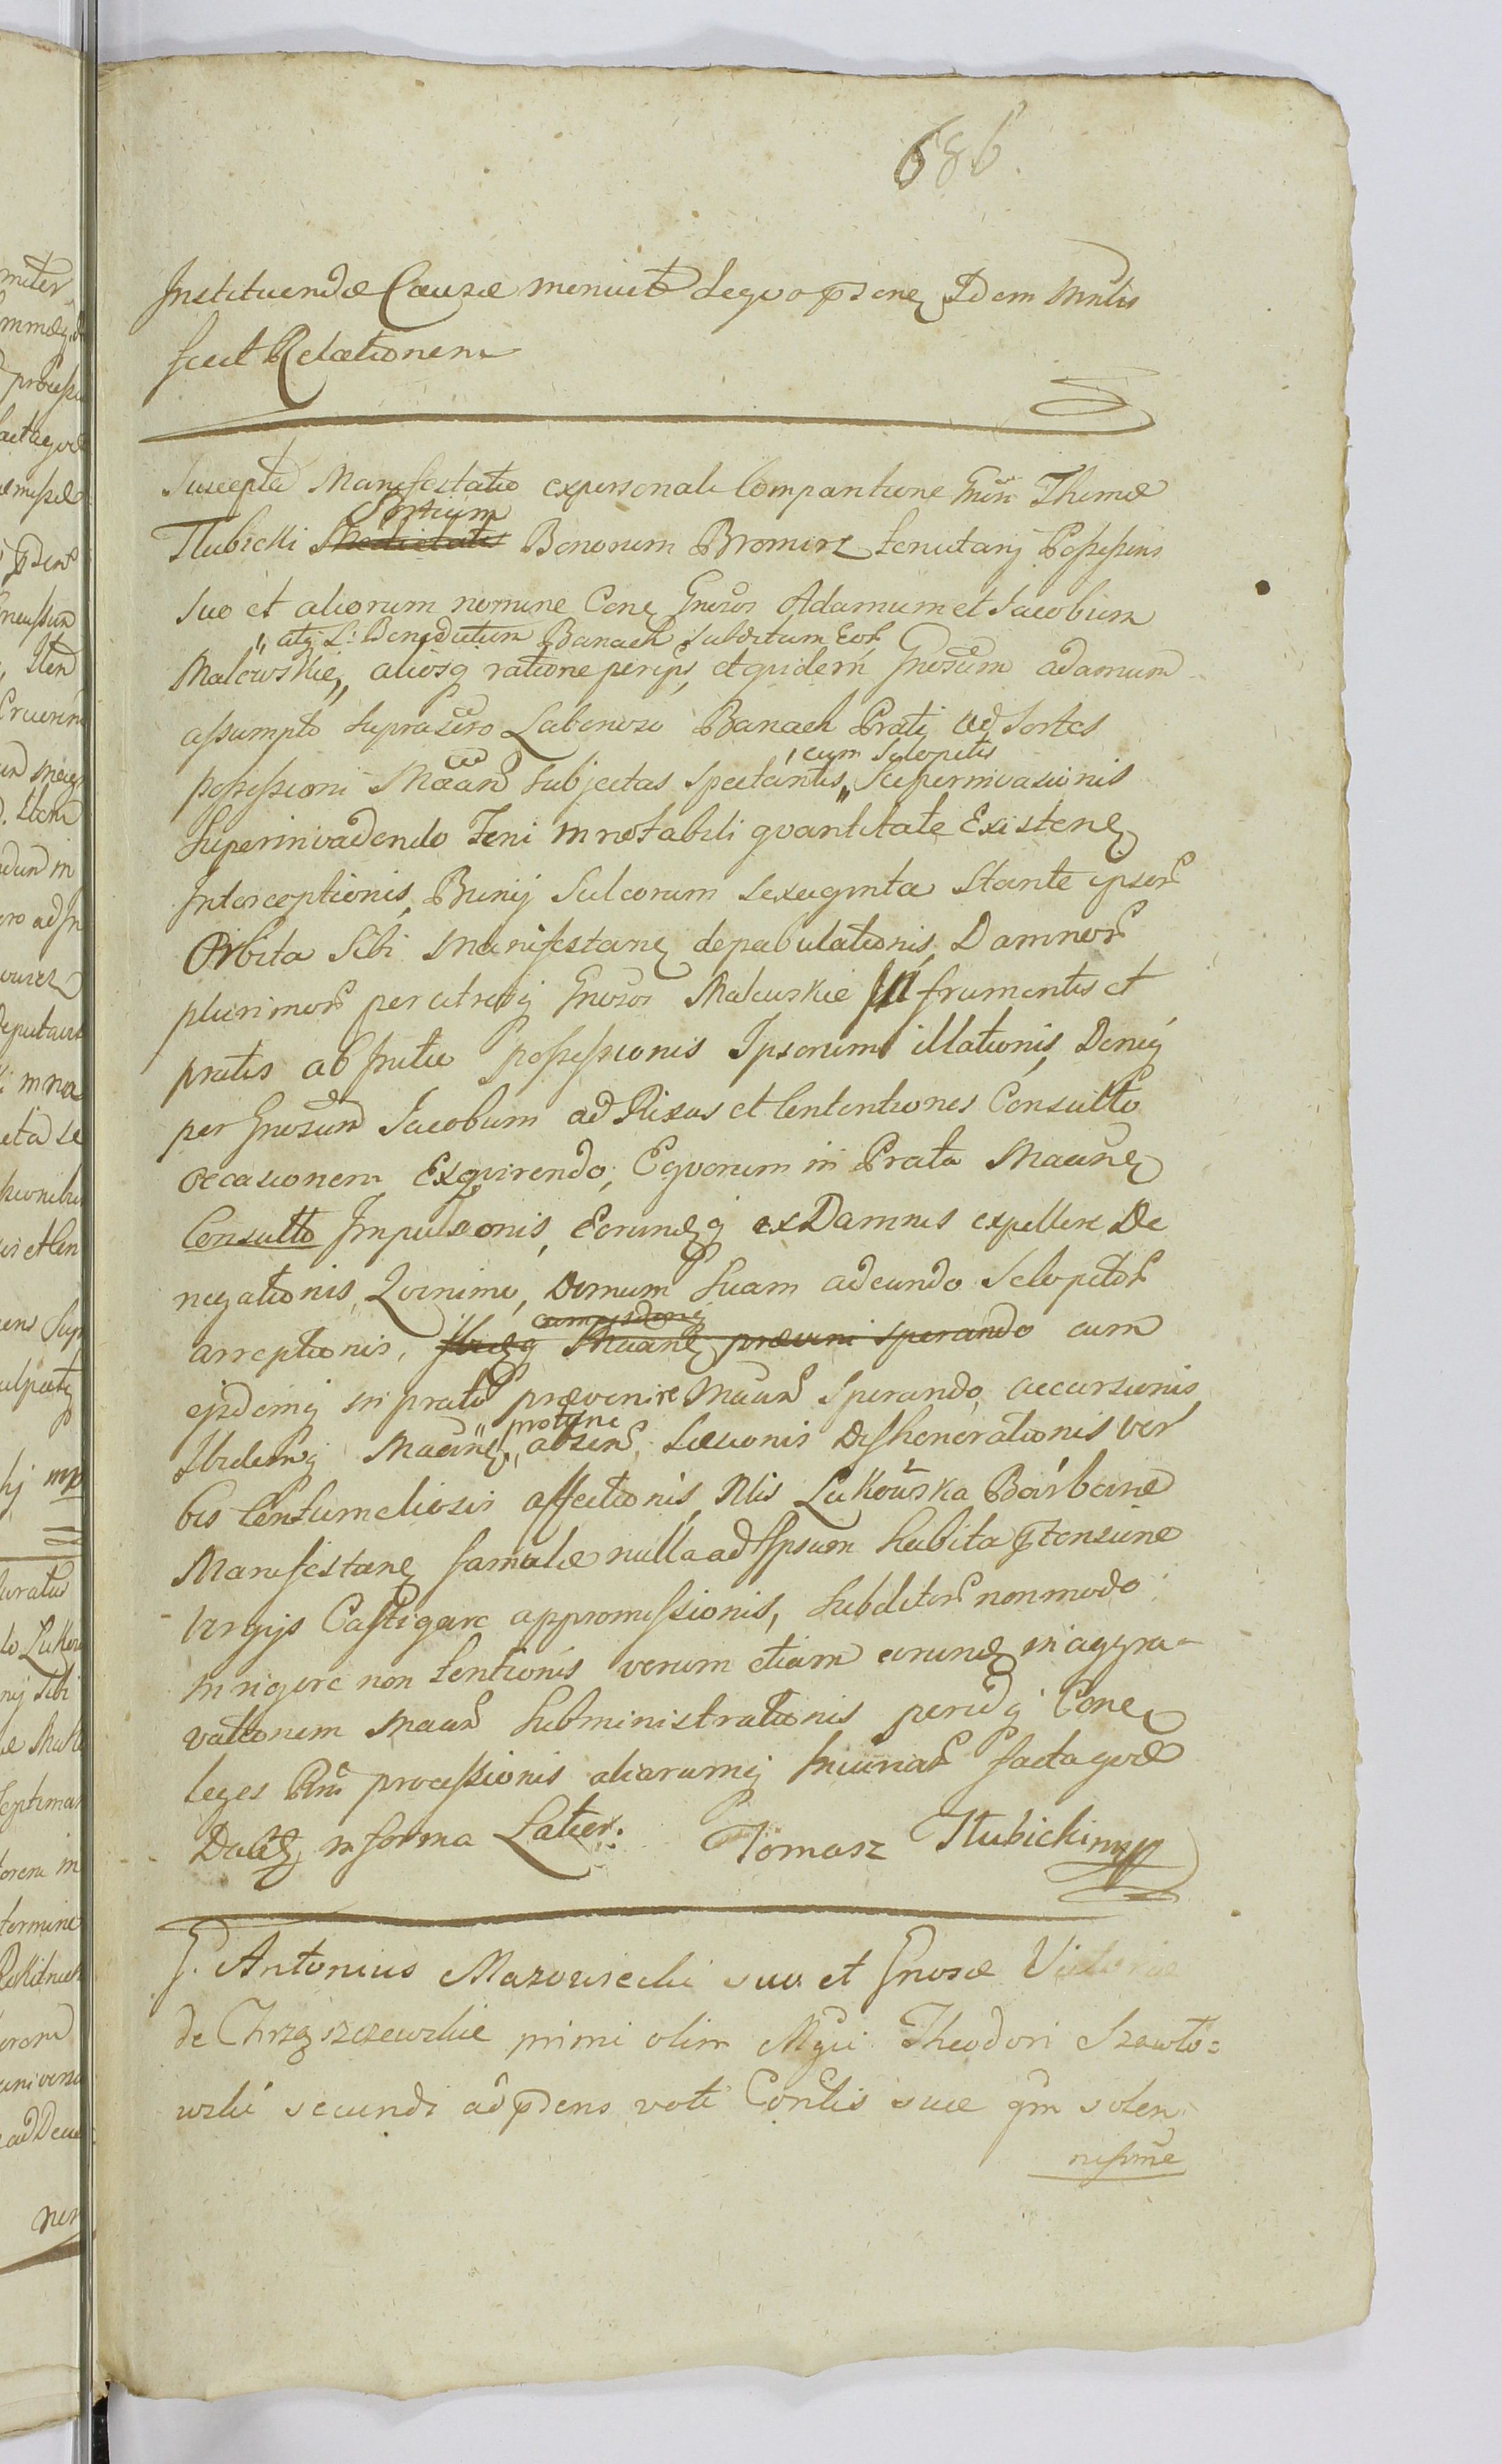 686.
Instituendæ Causæ moniuit de quo pdene Idem Mntis
fecit Relationem
Suscepta Manifestatio ex personali Comparitione Gnsi Thomæ
Sortium
Tlubicki Medietatis Bonorum Bromirz tenutarij Possessens
suo et aliorum nomine Cone Gnosos Adamum et Jacobum
atq L: Benedictum Banach Subditum Eor
Malewskie, aliosq ratione peripś, et quidem Gnosum adamum
assumpto suprascro Laborioso Banach Prati ad Sortes
cum Sclopetis
possessioni Maan subjectas Spectantis, Superinvasionis
Superinvadendo Feni in notabili quantitate Existene
Interceptionis, Runij Sulcorum sexaginta Stante ipsor
Orbita Sibi Manifestane depabulationis, Damnor
plurimor per utrosq Gnosos Malewskie in frumentis et
pratis ab Initio possessionis Ipsorum illationis, Deniq
per Gnosum Jacobum ad Rixas et Contentiones Consulto
occasionem Exquirendo, Equorum in Prata Maane
Consulto Impulsionis, Eorundq ex Damnis expellere De
negationis, Quinimo, Domum Suam adeundo Sclopetor
arreptionis, Maane prævenire sperando cum
ejsdemq in prato prævenire Maan Sperando, accursionis
protunc
Ibidemq Maane, absen, Læsionis Dishonorationis ver
bis Contumeliosis affectionis, Nlis Lukowska Barbaræ
Manifestane famulæ nulla ad Ipsum habita ptensione
Virgijs Castigare appromissionis, Subditor non modo
in rigore non tentionis verum etiam eorund in aggra-
vationem Maan Subministrationis peridq Cone
leges Rni processionis aliarumq Iniuriar facta quæ
Datt in forma Latior: Tomasz Tłubicki mpp
G. Antonius Mazowiecki suo et Gnosæ Victoriæ
de Chrząszczewskie primi olim Mgci Theodori Szawło:
wski secundi ad pdens voti Contis suæ qm solen
nissime